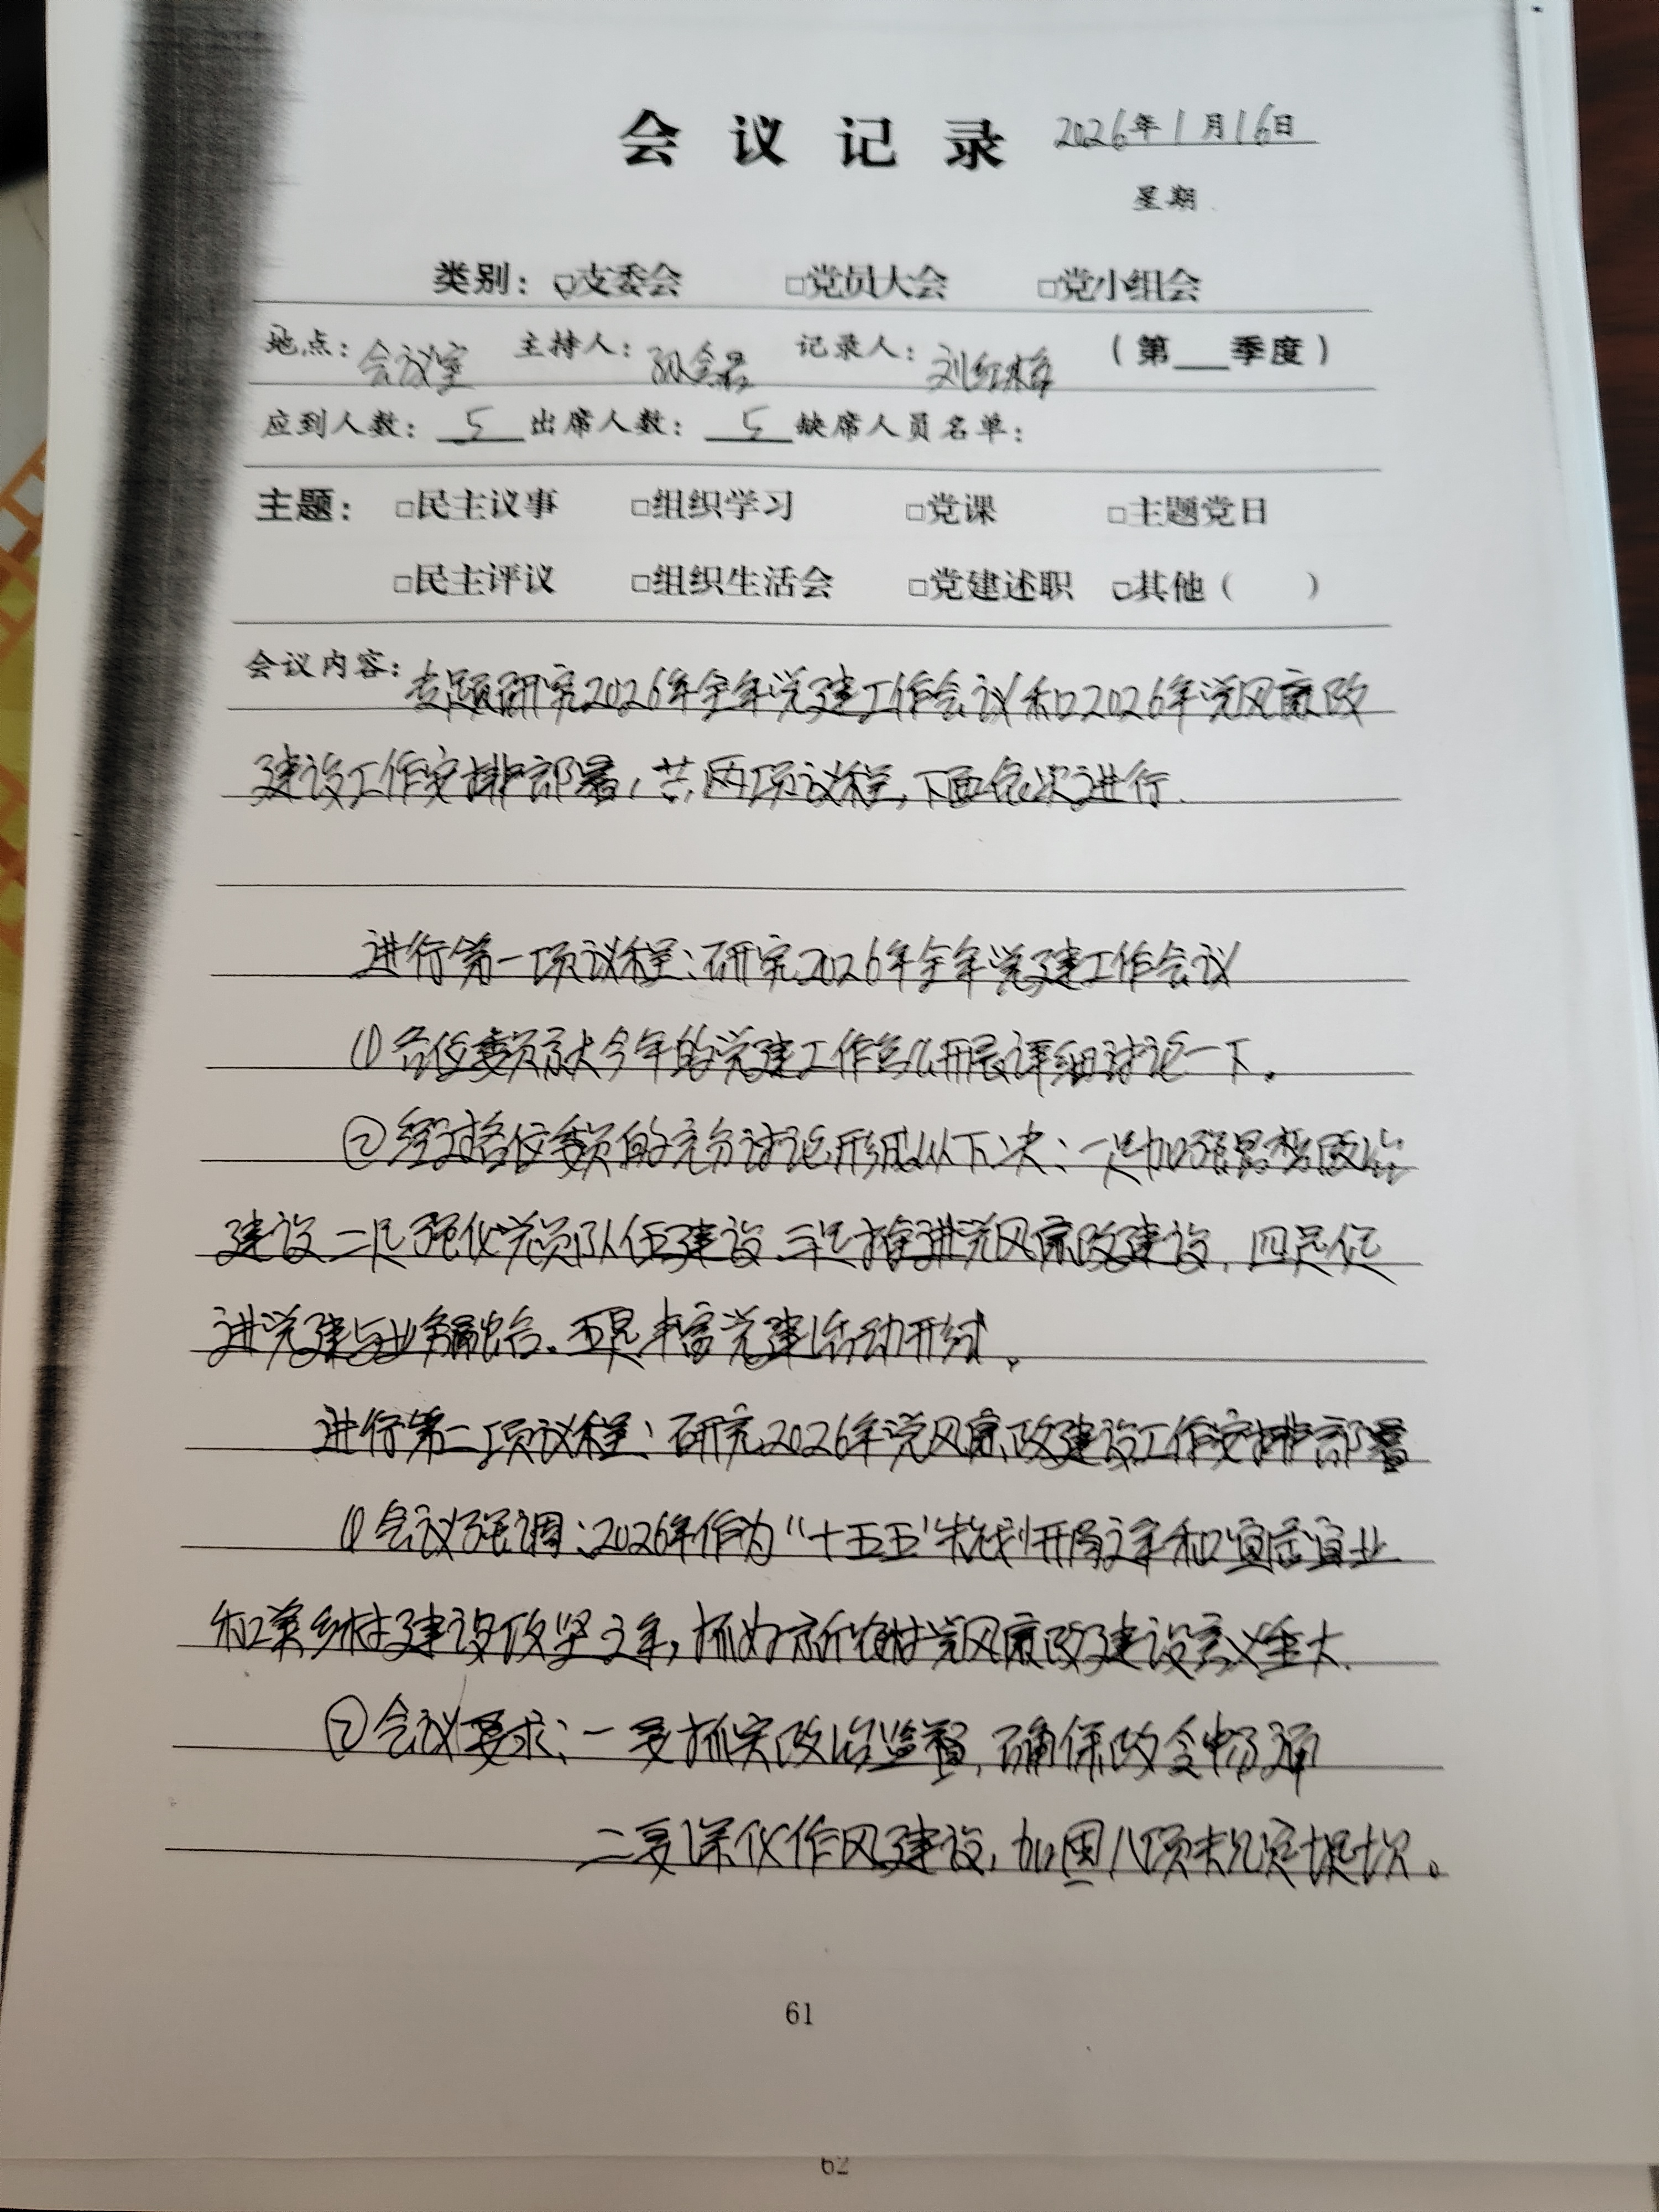 会议记录 2026年1月16日
星期
类别：□支委会 □党员大会 □党小组会
地点：会议室 主持人： 记录人：刘红梅 （第___季度）
应到人数：5 出席人数：5 缺席人员名单：
主题：□民主议事 □组织学习 □党课 □主题党日
□民主评议 □组织生活会 □党建述职 □其他（ ）
会议内容：专题研究2026年全年党建工作会议和2026年党风廉政
建设工作安排部署，共两项议程，下面依次进行.
进行第一项议程：研究2026年全年党建工作会议
①各位委员就今年的党建工作怎么开展详细讨论一下。
②经过各位委员的充分讨论形成以下决：一是加强思想政治
建设 二是强化党员队伍建设、三是推进党风廉政建设，四是促
进党建与业务融合。五是丰富党建活动形式。
进行第二项议程：研究2026年党风廉政建设工作安排部署
①会议强调：2026年作为“十五五”规划开局之年和宜居宜业
和美乡村建设攻坚之年，抓好新农村党风廉政建设意义重大.
②会议要求：一要抓实政治监督，确保政令畅通
二要深化作风建设，加固八项规定堤坝。
61
62